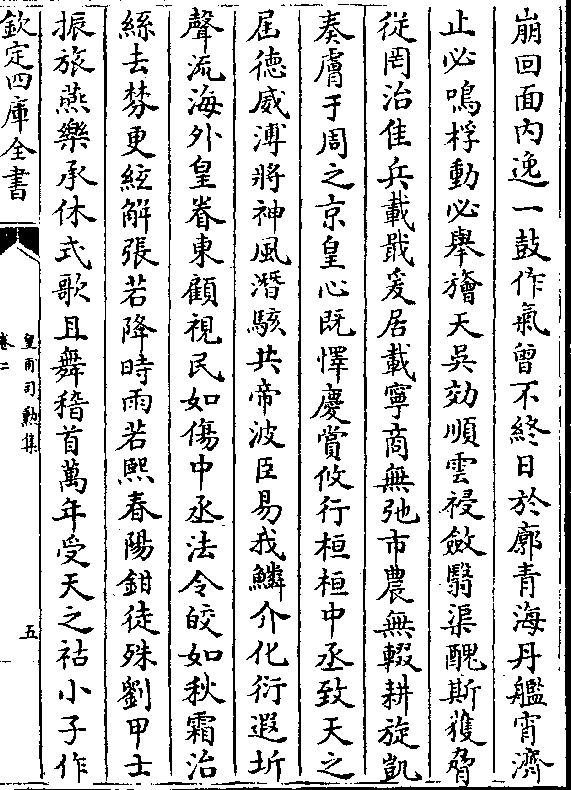 崩回面内逸一鼓作氣曾不終日於廓青海丹艦宵濟
止必鳴桴動必舉旝天吳効順雲祲斂翳渠醜斯獲脅
從罔治隹兵載戢爰居載寧商無弛市農無輟耕旋凱
奏膚于周之京皇心既懌慶賞攸行桓桓中丞致天之
屆德威溥將神風潛駭共帝波臣易我鱗介化衍遐圻
聲流海外皇眷東顧視民如傷中丞法令皎如秋霜治
絲去棼更絃解張若降時雨若熙春陽鉗徒殊劉甲士
振旅燕樂承休式歌且舞稽首萬年受天之祜小子作
欽定四庫全書
皇甫司勲集
卷二
五